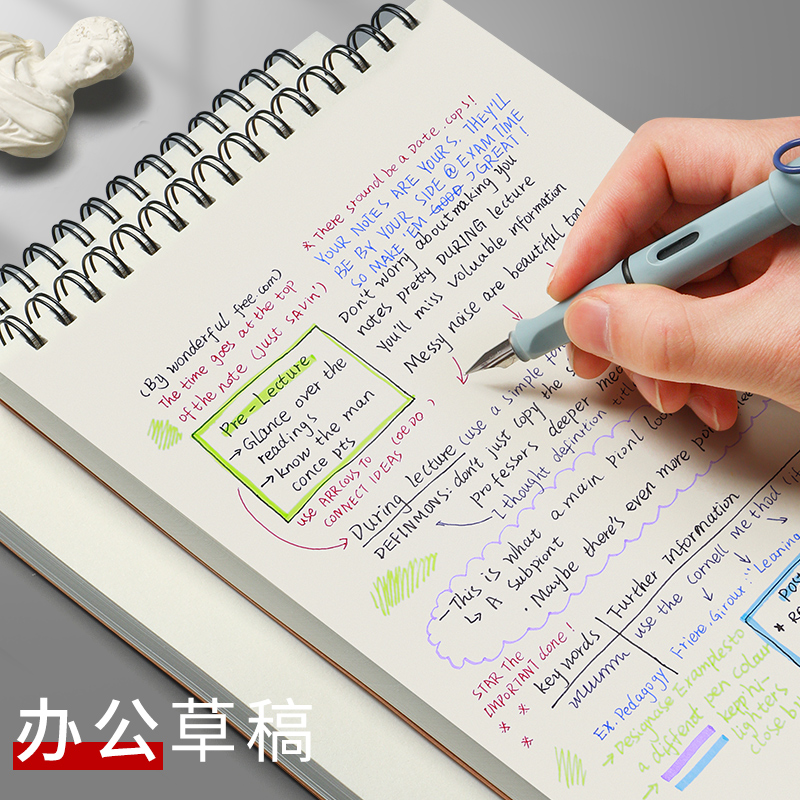 * There sround be a Date cops!
YOUR NOTES ARE YOURS, THEY'LL
BE BY YOUR SIDE @ EXAM TIME
SO MAKE 'EM GOOD GREAT!
Don't worry about making you
notes pretty DURING lecture
You'll miss voluable information
Messy noise are beautiful too!
(By wonderful free.com)
The time goes at the top
of the note (Just SAVin')
Pre-Lecture
→ GLANCE over the
readings
→ know the man
conce pts
use ARRCOVS TO (OEDO)
CONNECT IDEAS
During lecture (use a simple
DEFINMONS: don't just copy the
professors deeper
I thought definition
- This is what a main pionl
↳ A subpiont
• Maybe there's even more
STAR The
IMPORTANT done!
* *
* *
key words Further information
use the Cornell me thod
Ex. Pedagogy Friere, Giroux: "Leaning
→ Designose Examplesto
a differenf pen colour
→ kepp hi-
lighters
close by
*
办公草稿